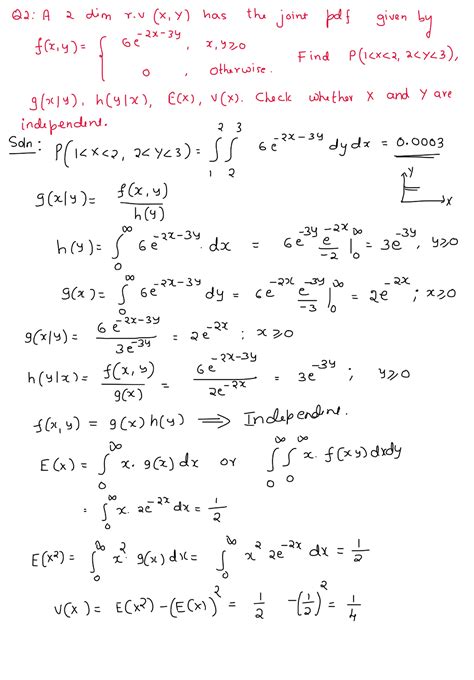 Q2: A 2 dim r.v (X, Y) has the joint pdf given by
f(x,y) = { 6e^{-2x-3y} , x,y≥0
0 , otherwise. Find P(1<X<2, 2<Y<3),
g(x|y), h(y|x), E(X), V(X). Check whether X and Y are
independent.
Soln: P(1<X<2, 2<Y<3) = ∫_1^2 ∫_2^3 6e^{-2x-3y} dy dx = 0.0003
g(x|y) = f(x,y) / h(y)
Y
x
h(y) = ∫_0^∞ 6e^{-2x-3y} dx = 6e^{-3y} e^{-2x}/-2 |_0^∞ = 3e^{-3y}, y≥0
g(x) = ∫_0^∞ 6e^{-2x-3y} dy = 6e^{-2x} e^{-3y}/-3 |_0^∞ = 2e^{-2x} ; x≥0
g(x|y) = 6e^{-2x-3y} / 3e^{-3y} = 2e^{-2x} ; x≥0
h(y|x) = f(x,y) / g(x) = 6e^{-2x-3y} / 2e^{-2x} = 3e^{-3y} ; y≥0
f(x,y) = g(x) h(y) ⟹ Independent.
E(X) = ∫_0^∞ x. g(x) dx or ∫_0^∞ ∫_0^∞ x. f(xy) dxdy
= ∫_0^∞ x. 2e^{-2x} dx = 1/2
E(X²) = ∫_0^∞ x². g(x) dx = ∫_0^∞ x² 2e^{-2x} dx = 1/2
V(X) = E(X²) - (E(X))² = 1/2 - (1/2)² = 1/4